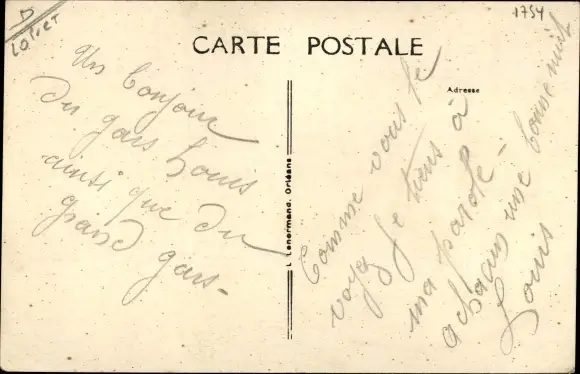 D
LOIRET
1754
CARTE POSTALE
Adresse
Un bonjour
du gars Louis
ainsi que du
grand gars-
L. Lenormand, Orléans
Comme vous le
voyez je tiens à
ma parole-
a chacun une bonne nuit
Louis